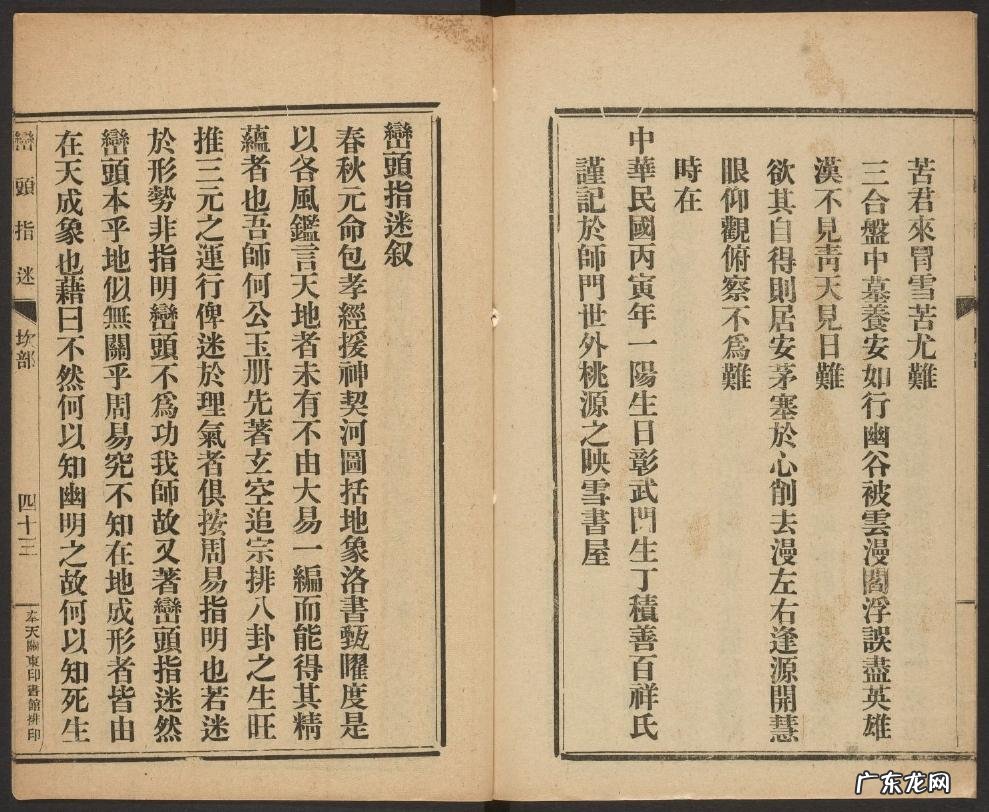 苦君來冐雪苦尤難
三合盤中墓養安如行幽谷被雲漫閻浮誤盡英雄
漢不見靑天見日難
欲其自得則居安茅塞於心削去漫左右逢源開慧
眼仰觀俯察不爲難
時在
中華民國丙寅年一陽生日彰武門生丁積善百祥氏
謹記於師門世外桃源之映雪書屋
巒頭指迷叙
春秋元命包孝經援神契河圖括地象洛書甄曜度是
以各風鑑言天地者未有不由大易一編而能得其精
蘊者也吾師何公玉册先著玄空追宗排八卦之生旺
推三元之運行俾迷於理氣者俱按周易指明也若迷
於形勢非指明巒頭不爲功我師故又著巒頭指迷然
巒頭本乎地似無關乎周易究不知在地成形者皆由
在天成象也藉曰不然何以知幽明之故何以知死生
巒頭指迷
坎部
四十三
奉天關東印書館排印
广东龙网